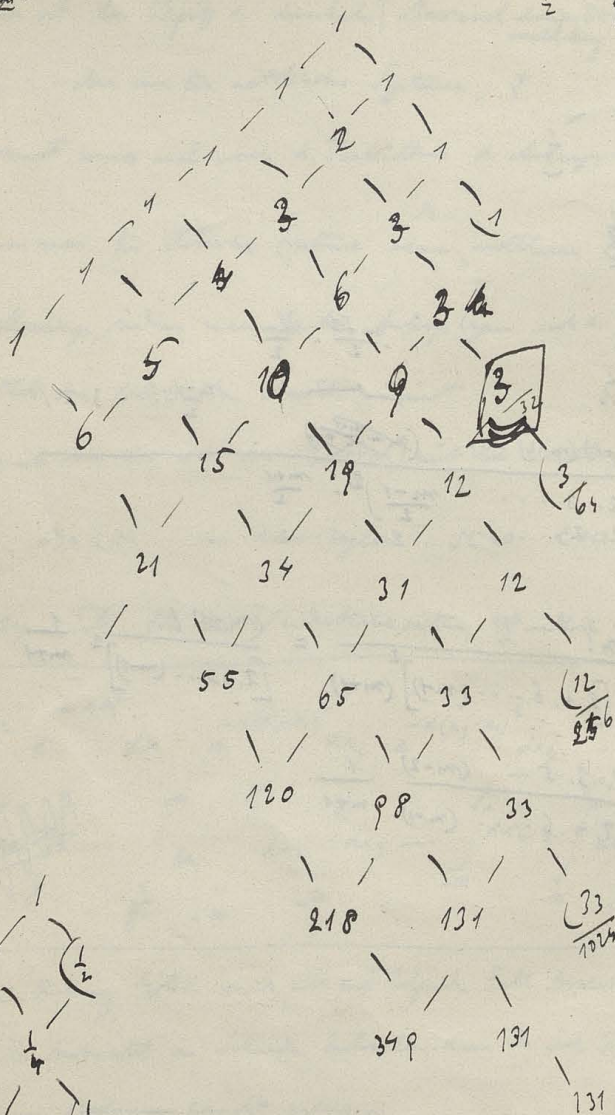 1
1 1
2
1 1
1 3 3 1
1 4 6 3 4
1 5 10 9 3/32
6 15 19 12 3/64
21 34 31 12
55 65 33 12/256
120 98 33
218 131 33/1024
349 131
131
1
1/2
1/4